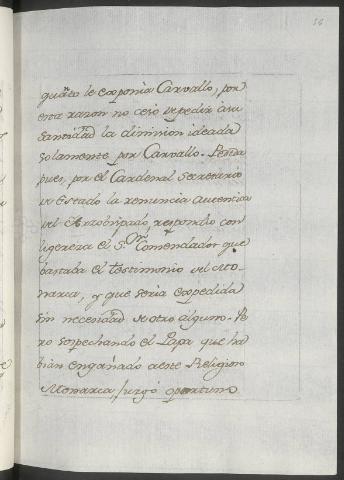 quãto le exponia Carvallo, por
esta razon no cesò de pedir à su
Santidad la dimision ideada
solamente por Carvallo. Pedida
pues, por el Cardenal Secretario
de Estado la renuncia autentica
del Arzobispado, respondiò con
ligereza el Sr. Comendador que
bastaba el testimonio del Mo-
narca, y que seria expedida
sin necesidad de otro alguno. Pe-
ro sospechando el Papa que ha-
bian engañado a este Religioso
Monarca, juzgò oportuno